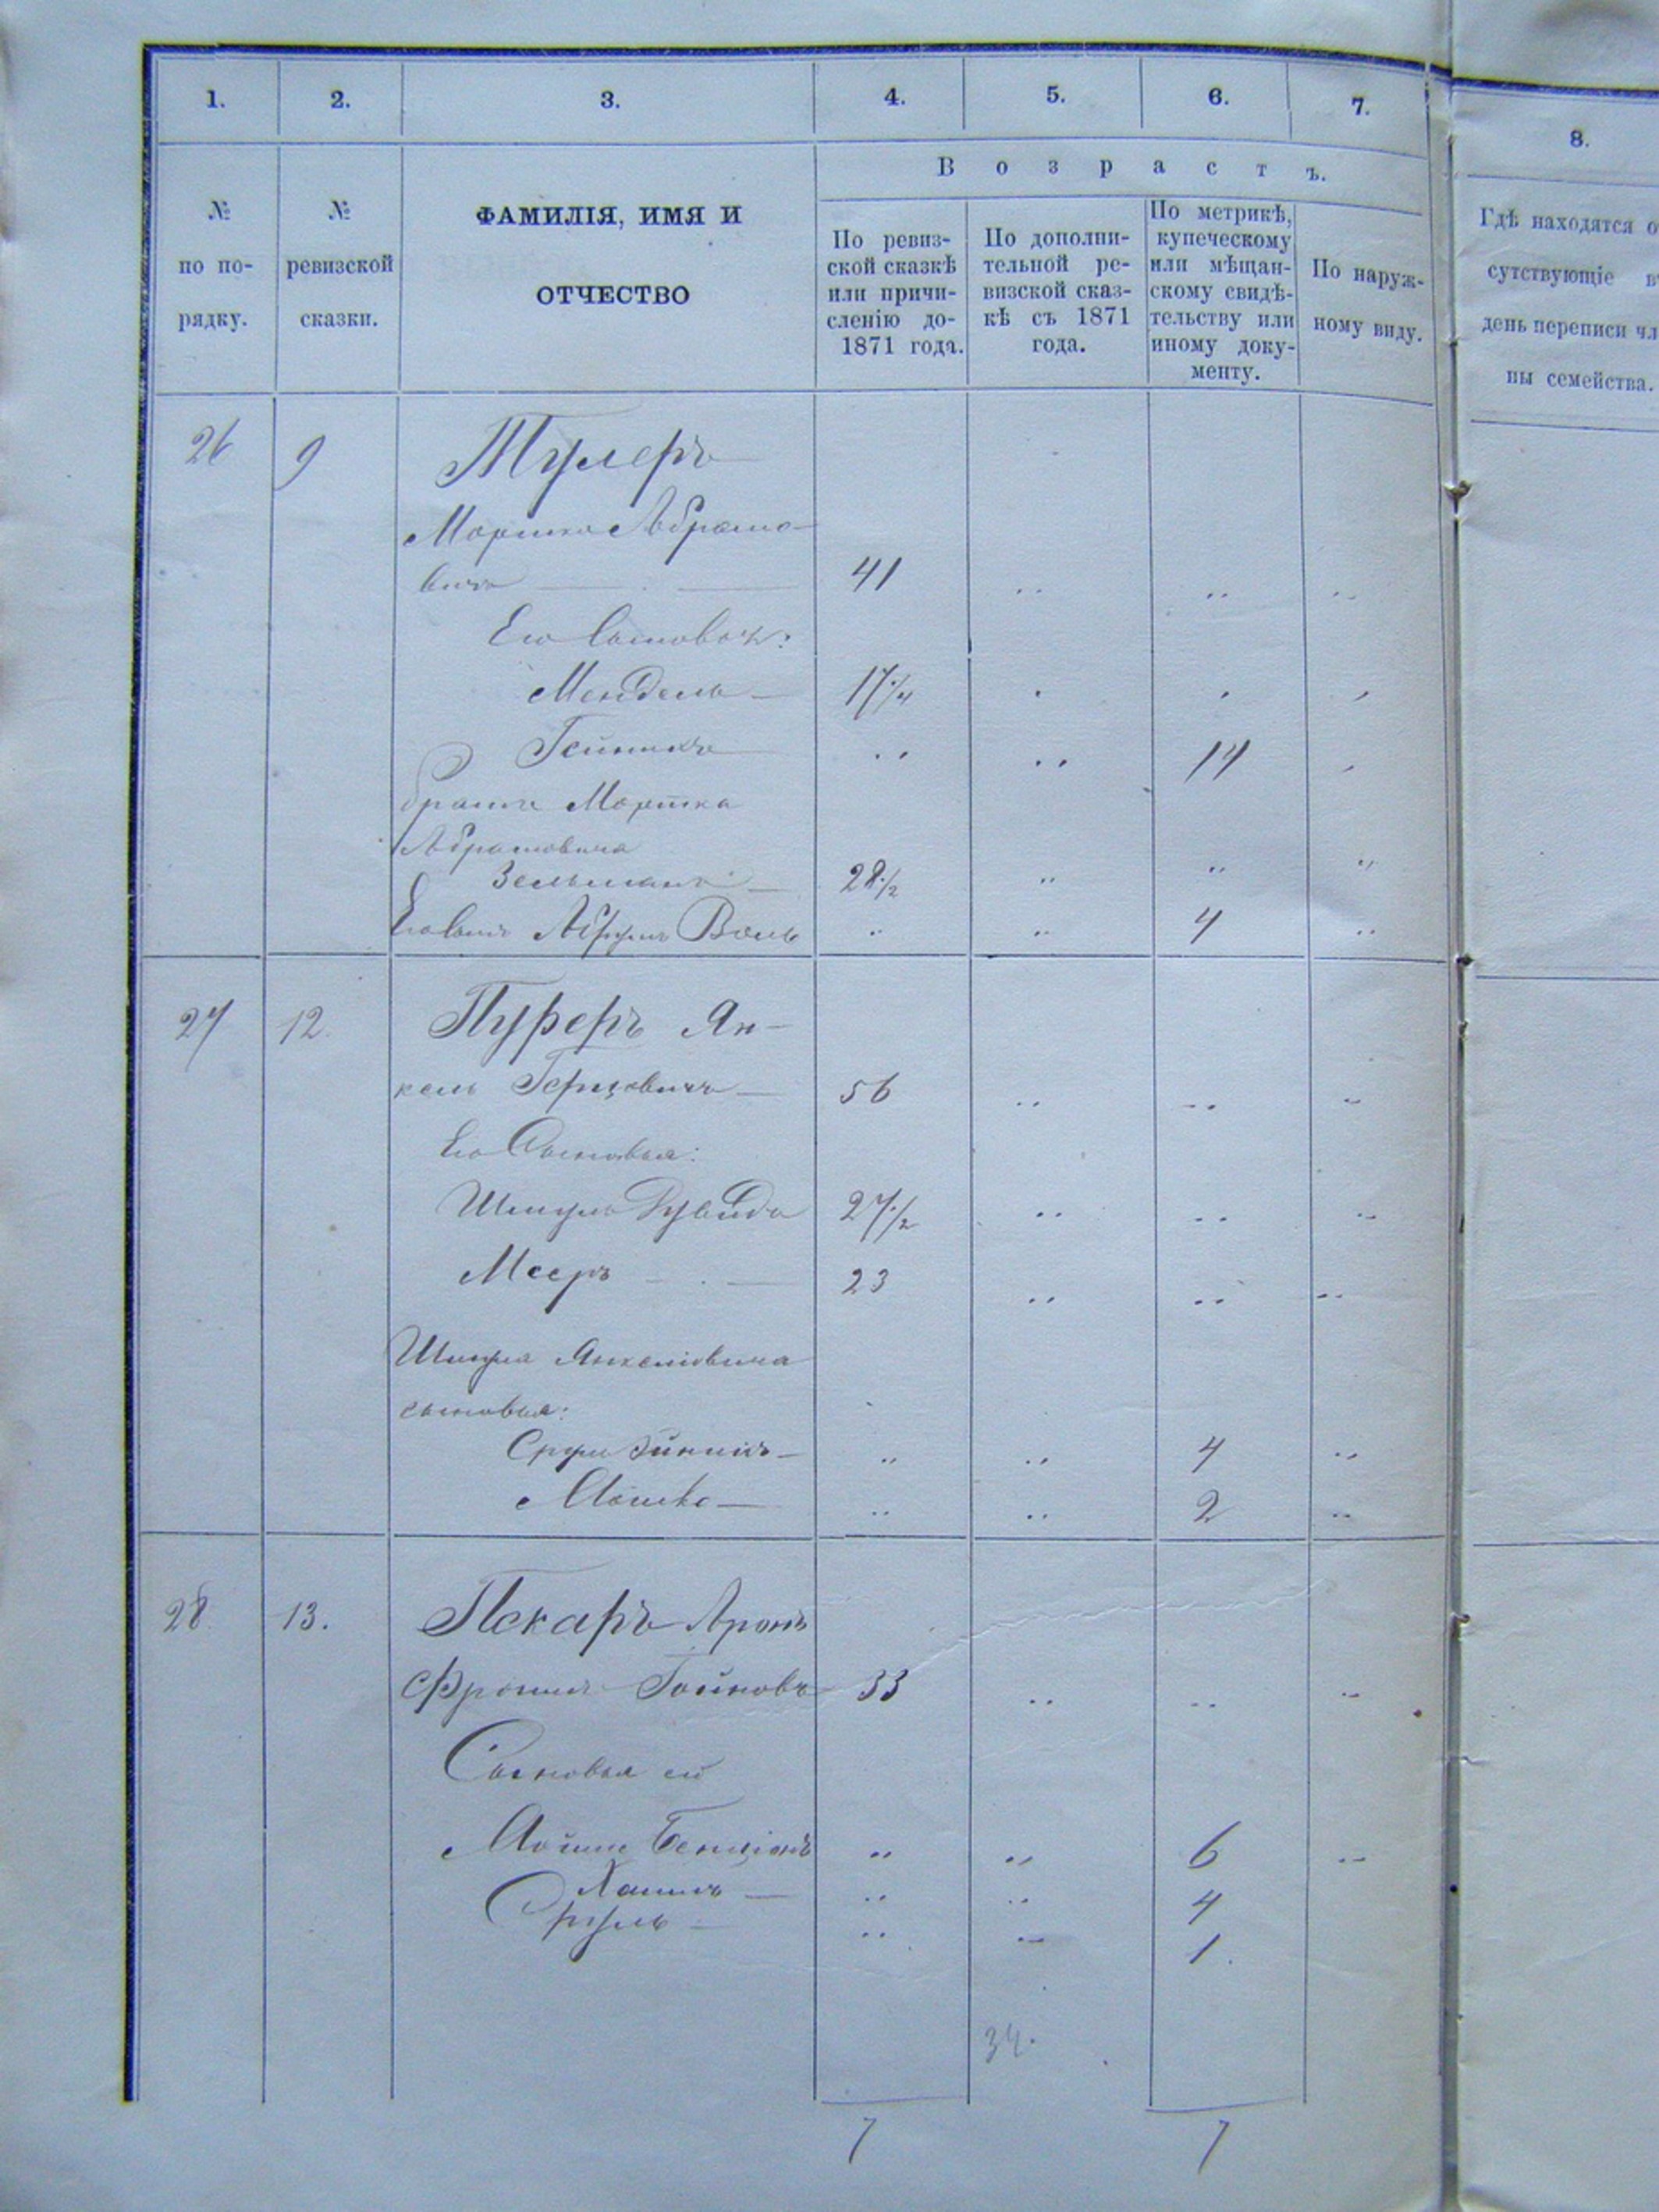 1. 2. 3. 4. 5. 6. 7. 8.
В о з р а с т ъ.
№
по по-
рядку.
№
ревизской
сказки.
ФАМИЛІЯ, ИМЯ И
ОТЧЕСТВО
По ревиз-
ской сказкѣ
или причи-
сленію до-
1871 года.
По дополни-
тельной ре-
визской сказ-
кѣ съ 1871
года.
По метрикѣ,
купеческому
или мѣщан-
скому свидѣ-
тельству или
иному доку-
менту.
По наруж-
ному виду.
Гдѣ находятся о
сутствующіе в
день переписи чл
ны семейства.
26 9 Тулеръ
Мортко Абрамо-
вичъ — 41 „ „ „
Его Сыновья:
Мендель — 17/4 „ „ „
Гейнихъ „ „ 14 „
братъ Мортка
Абрамовича
Зельманъ — 28/2 „ „ „
Его сынъ Абрумъ Воль „ „ 4 „
27 12. Пуферъ Ян-
кель Герцовичъ — 56 „ „ „
Его Сыновья:
Шмуль Дувидъ 27/2 „ „ „
Мееръ — 23 „ „ „
Шмуля Янкелiовича
сыновья:
Сруль — „ „ 4 „
Мошко — „ „ 2 „
28 13. Пекаръ Аронъ
Фроимъ 33 „ „ „
Сыновья его
Мойше Бенціонъ „ „ 6 „
Хаимъ — „ „ 4
Сруль — „ „ 1.
34.
7 7